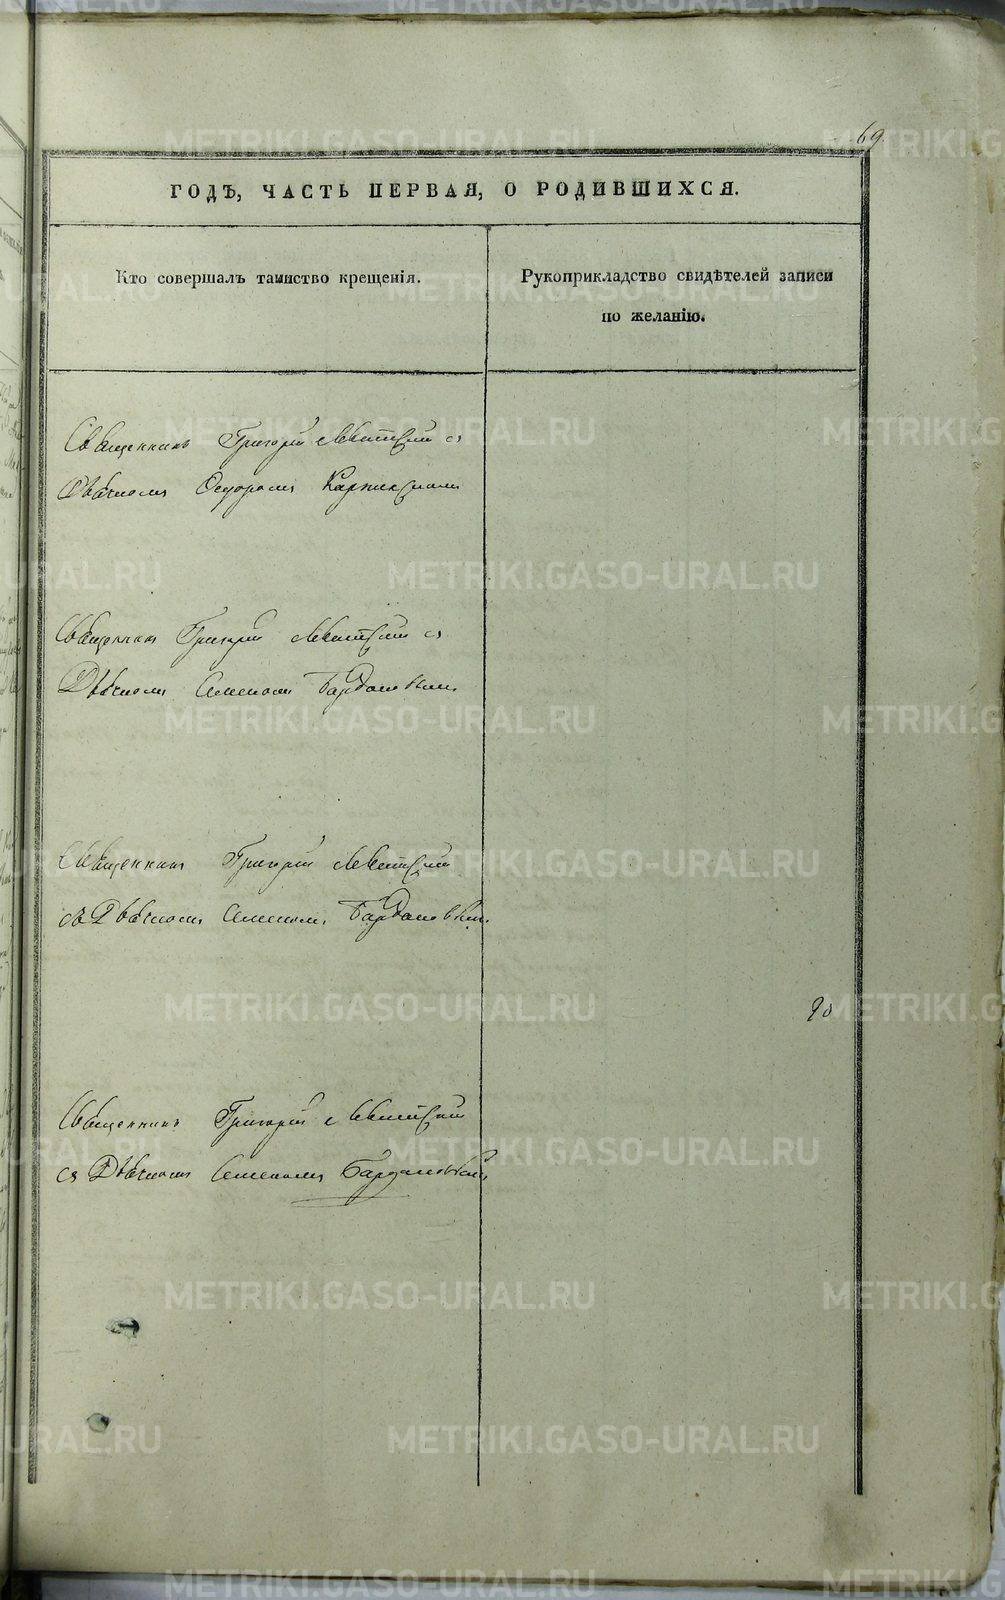 69.
ГОДЪ, ЧАСТЬ ПЕРВАЯ, О РОДИВШИХСЯ.
Кто совершалъ таинство крещенія.
Рукоприкладство свидѣтелей записи
по желанію.
Священникъ Григорій Левитскій съ
Дьячкомъ Ѳедоромъ
Священникъ Григорій Левитскій съ
Дьячкомъ Семеномъ
Священникъ Григорій Левитскій
съ Дьячкомъ Семеномъ
90
Священникъ Григорій Левитскій
съ Дьячкомъ Семеномъ
METRIKI.GASO-URAL.RU